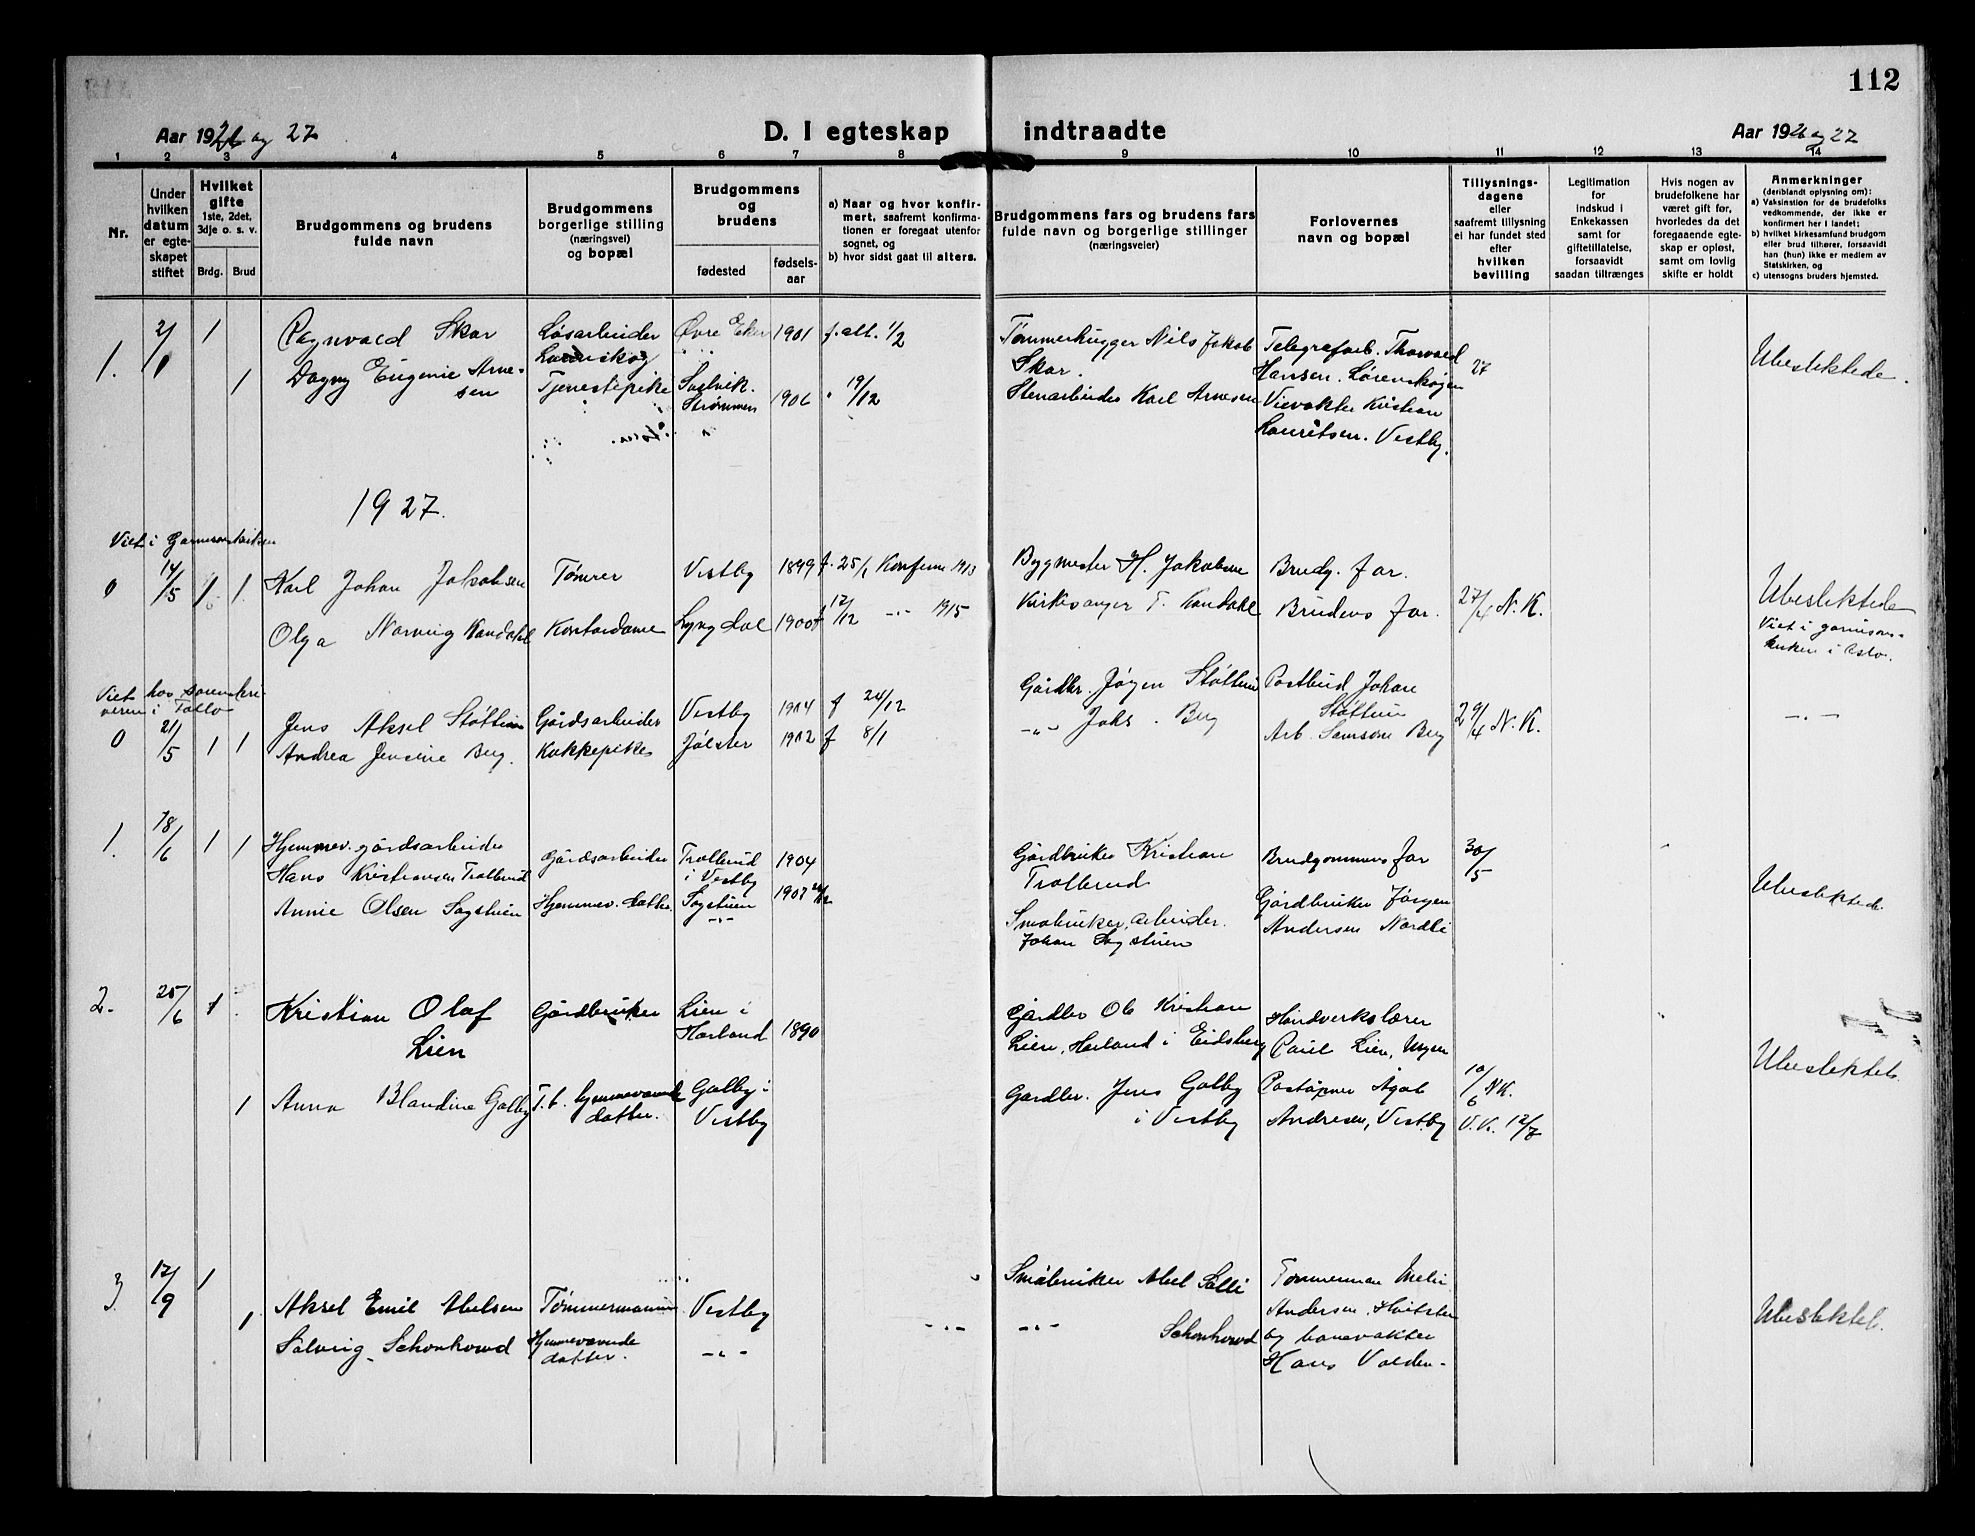 112
Aar 1926 og 27
D. I egteskap indtraadte
Aar 1926 og 27
1 2 3 4 5 6 7 8 9 10 11 12 13 14
Nr.
Under hvilken datum er egteskapet stiftet
Hvilket gifte 1ste, 2det, 3dje o. s. v.
Brdg. Brud
Brudgommens og brudens fulde navn
Brudgommens borgerlige stilling (næringsvei) og bopæl
Brudgommens og brudens
fødested
fødsels-aar
a) Naar og hvor konfirmert, saafremt konfirmationen er foregaat utenfor sognet, og
b) hvor sidst gaat til alters.
Brudgommens fars og brudens fars fulde navn og borgerlige stillinger (næringsveier)
Forlovernes navn og bopæl
Tillysningsdagene eller saafremt tillysning ei har fundet sted efter hvilken bevilling
Legitimation for indskud i Enkekassen samt for giftetillatelse, forsaavidt saadan tiltrænges
Hvis nogen av brudefolkene har været gift før, hvorledes da det foregaaende egteskap er opløst, samt om lovlig skifte er holdt
Anmerkninger (deriblandt oplysning om):
a) Vaksination for de brudefolks vedkommende, der ikke er konfirmert her i landet;
b) hvilket kirkesamfund brudgom eller brud tilhører, forsaavidt han (hun) ikke er medlem av Statskirken, og
c) utensogns bruders hjemsted.
1. 2/1 1 Ragnvald Skar Løsarbeider Øvre Eker 1901 f. alt. 1/2 Tømmerhugger Nils Jakob Telegrafarb. Thorvald
Lørenskog Skar. Hansen. Lørenskogen 27 Ubeslektede.
1 Dagny Eugenie Arne- Tjenestepike
sen Strømmen 1906 19/12 Stenarbeider Karl Arnesen Kristian
Lauritsen. Vestby.
1927.
Viet i Garnisonskirken
0 14/5 1 1 Karl Johan Jakobsen Tømrer Vestby 1899 f. 25/1 Konferm 1913 Bygmester H. Jakobsen Brudg. far.
Olga Kandahl Kontordame Lyngdal 1900 f 12/12 -"- 1915 Kirkesanger T. Kandahl Brudens far. 27/4 N.K. Ubeslektede
Viet i garnisons-
kirken i Oslo.
Viet hos sorenskri-
veren i Follo
0 21/5 1 1 Jens Aksel Støttum Gårdsarbeider Vestby 1904 f 24/12 Gårdbr. Jørgen Støttum Postbud Johan
Støttum 29/4 N.K. -"-
Andrea Jensine Berg. Kokkepike Jølster 1902 f 8/1 -"- Johs. Berg Arb. Samson Berg
1. 18/6 1 1 Hjemmev. gårdsarbeider
Hans Kristiansen Trollerud Gårdsarbeider Trollerud 1904 Gårdbruker Kristian Brudgommens far 30/5
i Vestby Trollerud
Annie Olsen Sagstuen Hjemmev. datter Sagstuen 1907 Gårdbruker Jørgen Ubeslektede.
-"- Småbruker, arbeider. Andersen Nordli
Johan Sagstuen
2. 25/6 1 Kristian Olaf Gårdbruker Lien i Gårdbr Ole Kristian Håndverkslærer
Lien Harland 1890 Lien, Harland i Eidsberg Paul Lien, Mysen
1 Anna Blandine Galby F. t. hjemmeværende Galby i Gardbr. Jens Galby Poståpner Ågot 10/6 N.K. Ubeslektede.
datter. Vestby i Vestby Andresen, Vestby V.K. 12/7
3. 12/9 1 Småbruker Abel Solli Tømmerman
1 Aksel Emil Abelsen Tømmermann Vestby Andersen, Hvitsten Ubeslekted.
Solveig Schonhowd Hjemmeværende -"- -"- Schonhowd og banevakter
datter. Hans Volden.